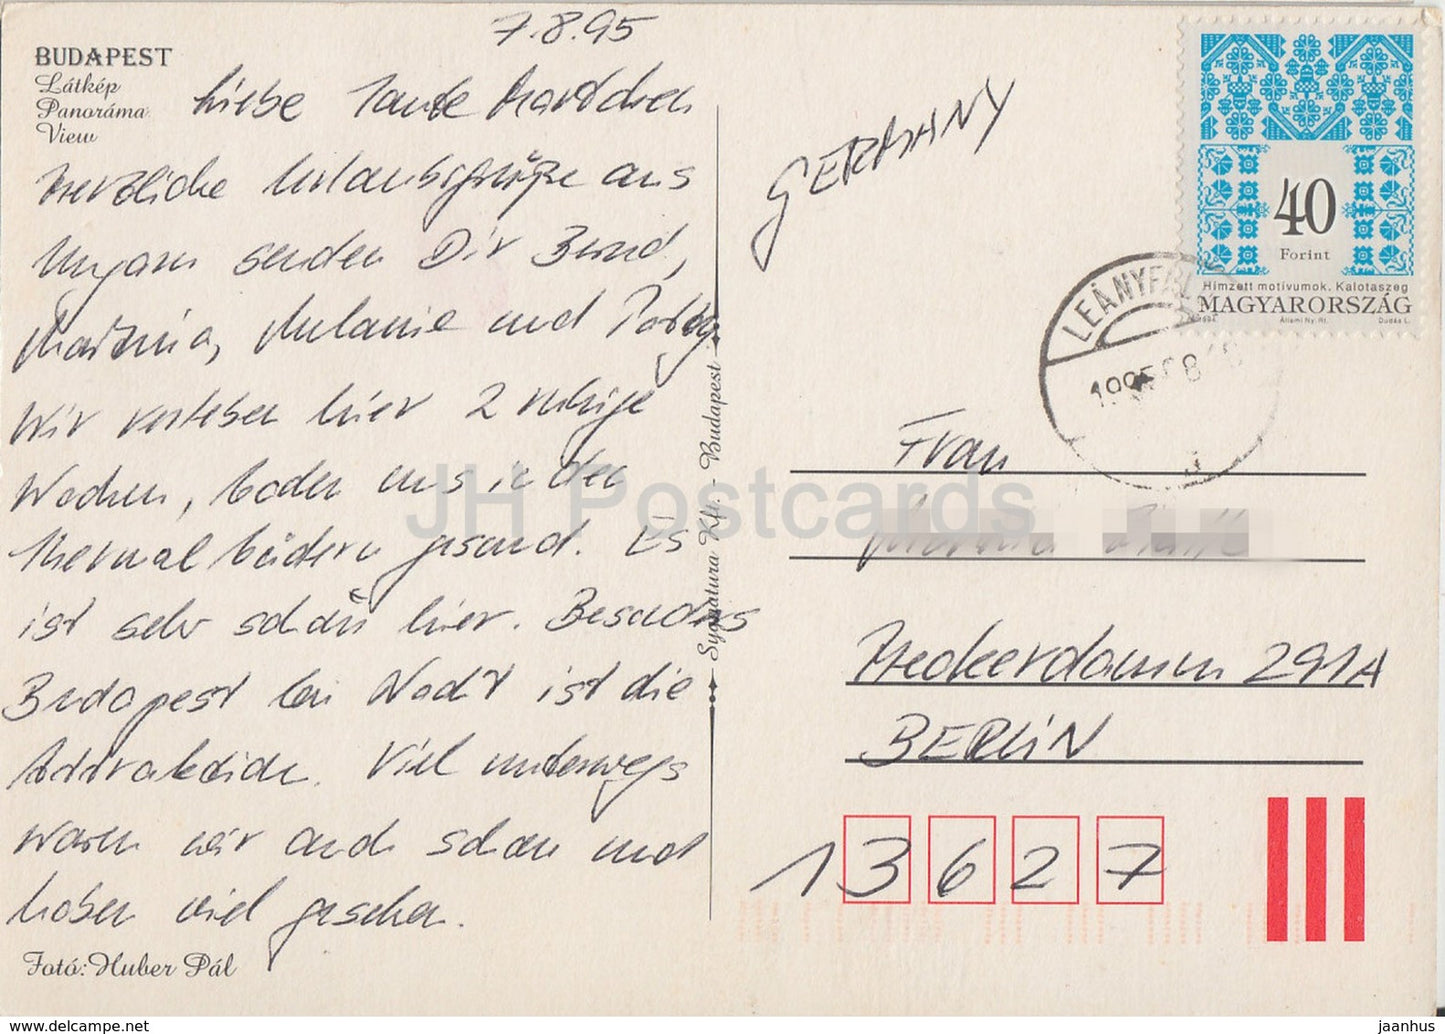 7.8.95
BUDAPEST
Látkép
Panoráma
View
Liebe Tante
Herzliche Urlaubsgrüße aus
Ungarn senden Dir Bernd,
Martina, Melanie und
Wir verleben hier 2 ruhige
Wochen, baden uns in den
Thermalbädern gesund. Es
ist sehr schön hier. Besonders
Budapest bei Nacht ist die
Attraktion. Viel unterwegs
waren wir auch schon und
haben viel gesehen.
Fotó: Huber Pál
Sygnatura Kft. - Budapest
GERMANY
40
Forint
Hímzett motívumok. Kalotaszeg
MAGYARORSZÁG
1994 Állami Ny. Rt. Dudás L.
LEÁNYFALU
Frau
Heckerdamm 291A
BERLIN
13627
JH Postcards
delcampe.net
jaanhus